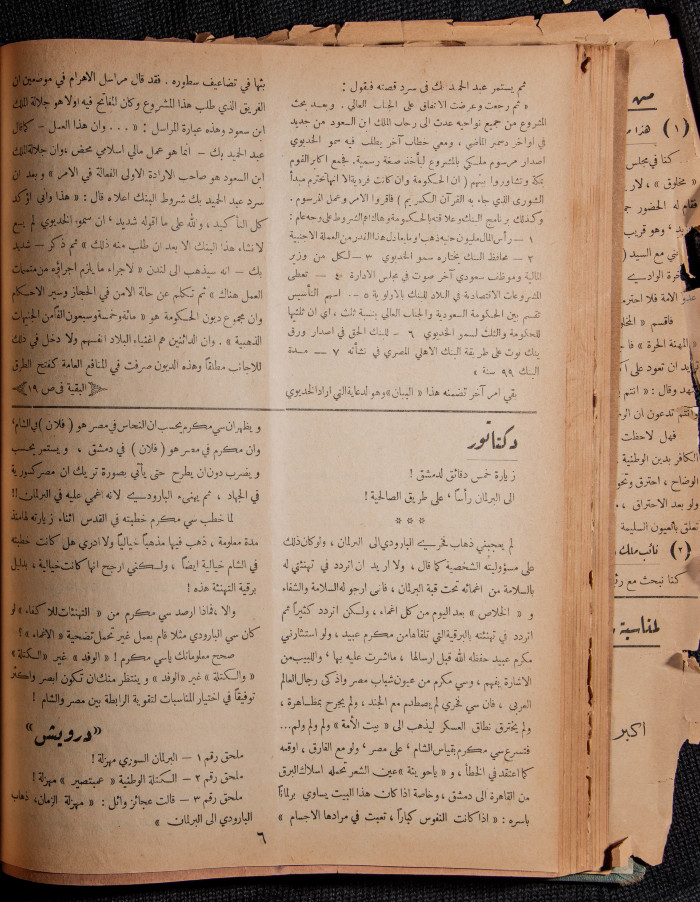 ثم يستمر عبد الحميد بك في سرد قصته فيقول :
« ثم رجعت وعرضت الاتفاق على الجناب العالي . وبعد بحث
المشروع من جميع نواحيه عدت الى رحاب الملك ابن السعود من جديد
في اواخر دسمبر الماضي ، ومعي خطاب آخر يطلب فيه سمو الخديوي
اصدار مرسوم ملكي بالمشروع ليأخذ صفة رسمية. فجمع اكابر القوم
بمكة وتشاوروا بينهم ( ان الحكومة وان كانت فردية الا انها تحترم مبدأ
الشورى الذي جاء به القرآن الكريم ) فاقروا الامر وعمل المرسوم .
وكذلك برنامج البنك وعلاقته بالحكومة وهاك الشروط على وجه عام :
١ — رأس المال مليون جنيه ذهب او ما يعادل هذا القدر من العملة الاجنبية
٢ — محافظ البنك يختاره سمو الخديوي ٣ — لكل من وزير
المالية وموظف سعودي آخر صوت في مجلس الادارة ٤ — تعطى
المشروعات الاقتصادية في البلاد للبنك بالاولوية ٥ — اسهم التأسيس
تقسم بين الحكومة السعودية والجناب العالي بنسبة ثلث ، اي ان ثلثيها
للحكومة والثلث لسمو الخديوي ٦ — للبنك الحق في اصدار ورق
بنك نوت على طريقة البنك الاهلي المصري في نشأته ٧ — مدة
البنك ٩٩ سنة »
بقي امر آخر تضمنه هذا « البيان » وهو لدعاية التي اراد الخديوي
بثها في تضاعيف سطوره . فقد قال مراسل الاهرام في موضعين ان
الفريق الذي طلب هذا المشروع وكان المفاتح فيه اولا هو جلالة الملك
ابن سعود وهذه عبارة المراسل : « ... وان هذا العمل - كما قال
عبد الحميد بك - انما هو عمل مالي اسلامي محض ، وان جلالة الملك
ابن السعود هو صاحب الارادة الاولى الفعالة في الامر » وبعد ان
سرد عبد الحميد بك شروط البنك اعلاه قال : « هذا واني اؤكد
كل التأكيد ، والله على ما اقوله شديد ، ان سمو الخديوي لم يسع
لانشاء هذا البنك الا بعد ان طلب منه ذلك » ثم ذكر - شديد
بك - انه سيذهب الى لندن « لاجراء ما يلزم اجراؤه من متممات
العمل هناك » ثم تكلم عن حالة الامن في الحجاز وسير الاحكام
وان مجموع ديون الحكومة هو « مائة وخمسة وسبعون الفا من الجنيهات
الذهبية » . وان الدائنين هم اغنياء البلاد انفسهم ولا دخل في ذلك
للاجانب مطلقاً وهذه الديون صرفت في المنافع العامة كفتح الطرق
البقية في ص ١٩
دكتاتور
زيارة خمس دقائق لدمشق !
الى البرلمان رأساً ، على طريق الصالحية !
* * *
لم يعجبني ذهاب فخري بك البارودي الى البرلمان ، ولو كان ذلك
على مسؤوليته الشخصية كما قال ، ولا اريد ان اتردد في تهنئتي له
بالسلامة من اغمائه تحت قبة البرلمان ، فاني ارجو له السلامة والشفاء
و « الخلاص » بعد اليوم من كل اغماء ، ولكن اتردد كثيراً مم
اتردد في تهنئته بالبرقية التي تلقاها من مكرم عبيد ، ولو استشارني
مكرم عبيد حفظه الله قبل ارسالها ، ما اشرت عليه بها ، واللبيب من
الاشارة يفهم ، وسي مكرم من عيون شباب مصر واذكى رجال العالم
العربي ، فان سي فخري لم يصطدم مع الجند ، ولم يجرح بمظاهرة ،
ولم يخترق نطاق العسكر ليذهب الى « بيت الأمة » ولم ولم ولم ...
فتسرع سي مكرم بقياس الشام ، على مصر ، ولو مع الفارق ، اوقعه
كما اعتقد في الخطأ ، و « يا حوينة » عين الشعر تحمله اسلاك البرق
من القاهرة الى دمشق ، وخاصة اذا كان هذا البيت يساوي برلماناً
باسره : « اذا كانت النفوس كباراً ، تعبت في مرادها الاجسام »
و يظهر ان سي مكرم يحسب ان النحاس في مصر هو ( فلان ) في الشام ،
وان مكرم في مصر هو ( فلان ) في دمشق ، و يستمر يحسب
و يضرب دون ان يطرح حتى يأتي بصورة تريك ان مصر كسورية
في الجهاد ، ثم يهنىء البارودي بيه لانه اغمي عليه في البرلمان !!
لما خطب سي مكرم خطبته في القدس اثناء زيارته لها منذ
مدة معلومة ، ذهب فيها مذهباً خيالياً ولا ادري هل كانت خطبه
في الشام خيالية ايضاً ، ولكني ارجح انها كانت خيالية ، بدليل
برقية التهنئة هذه !
والا ، فماذا ارصد سي مكرم من « التهنئات للاكفاء » لو
كان سي البارودي مثلا قام بعمل غير تحمل تضحية « الاغماء » ؟
صحح معلوماتك ياسي مكرم ! « الوفد » غير « الكتلة »
« والكتلة » غير « الوفد » و ينتظر منك ان تكون أبصر واكثر
توفيقاً في اختيار المناسبات لتقوية الرابطة بين مصر والشام !
« درويش »
ملحق رقم ١ — البرلمان السوري مهزلة !
ملحق رقم ٢ — الكتلة الوطنية « عمبتصير » مهزلة !
ملحق رقم ٣ — قالت عجائز وائل : « مهزلة الزمان ، ذهاب
البارودي الى البرلمان »
٦
من
( ١ ) هذا
كنا في مجلس
« مخلوق » ، لار
فقام له الحضور
، وهو قريب
ني مع السيد (
عدو الامة فلا احترم
فاقسم «
« المهنة الحرة » فا
تريد ان تعود على
وقال : « انتم
وانتم تدعون ان
فهل لاحظت
الكافر بدين الوطنية
الوضاح ، احترق وتحو
ولو بعد الاحتراق ،
تعلق بالعيون السليمة
( ٢ ) نائب ملك
كنا نبحث مع
لمناسبة
اكبر